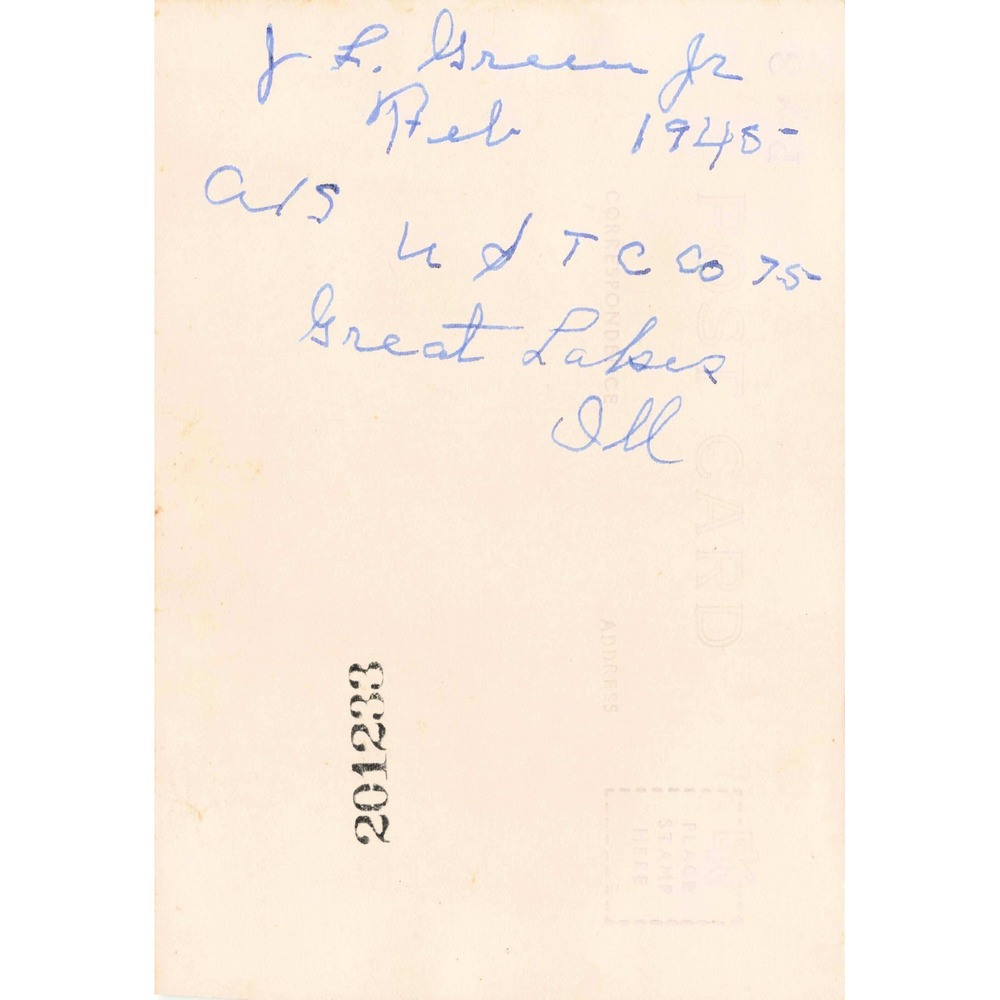 J L. Green Jr
Feb 1945
A/S
U S T C Co 75
Great Lakes
Ill
POST CARD
CORRESPONDENCE
ADDRESS
PLACE
STAMP
HERE
201233